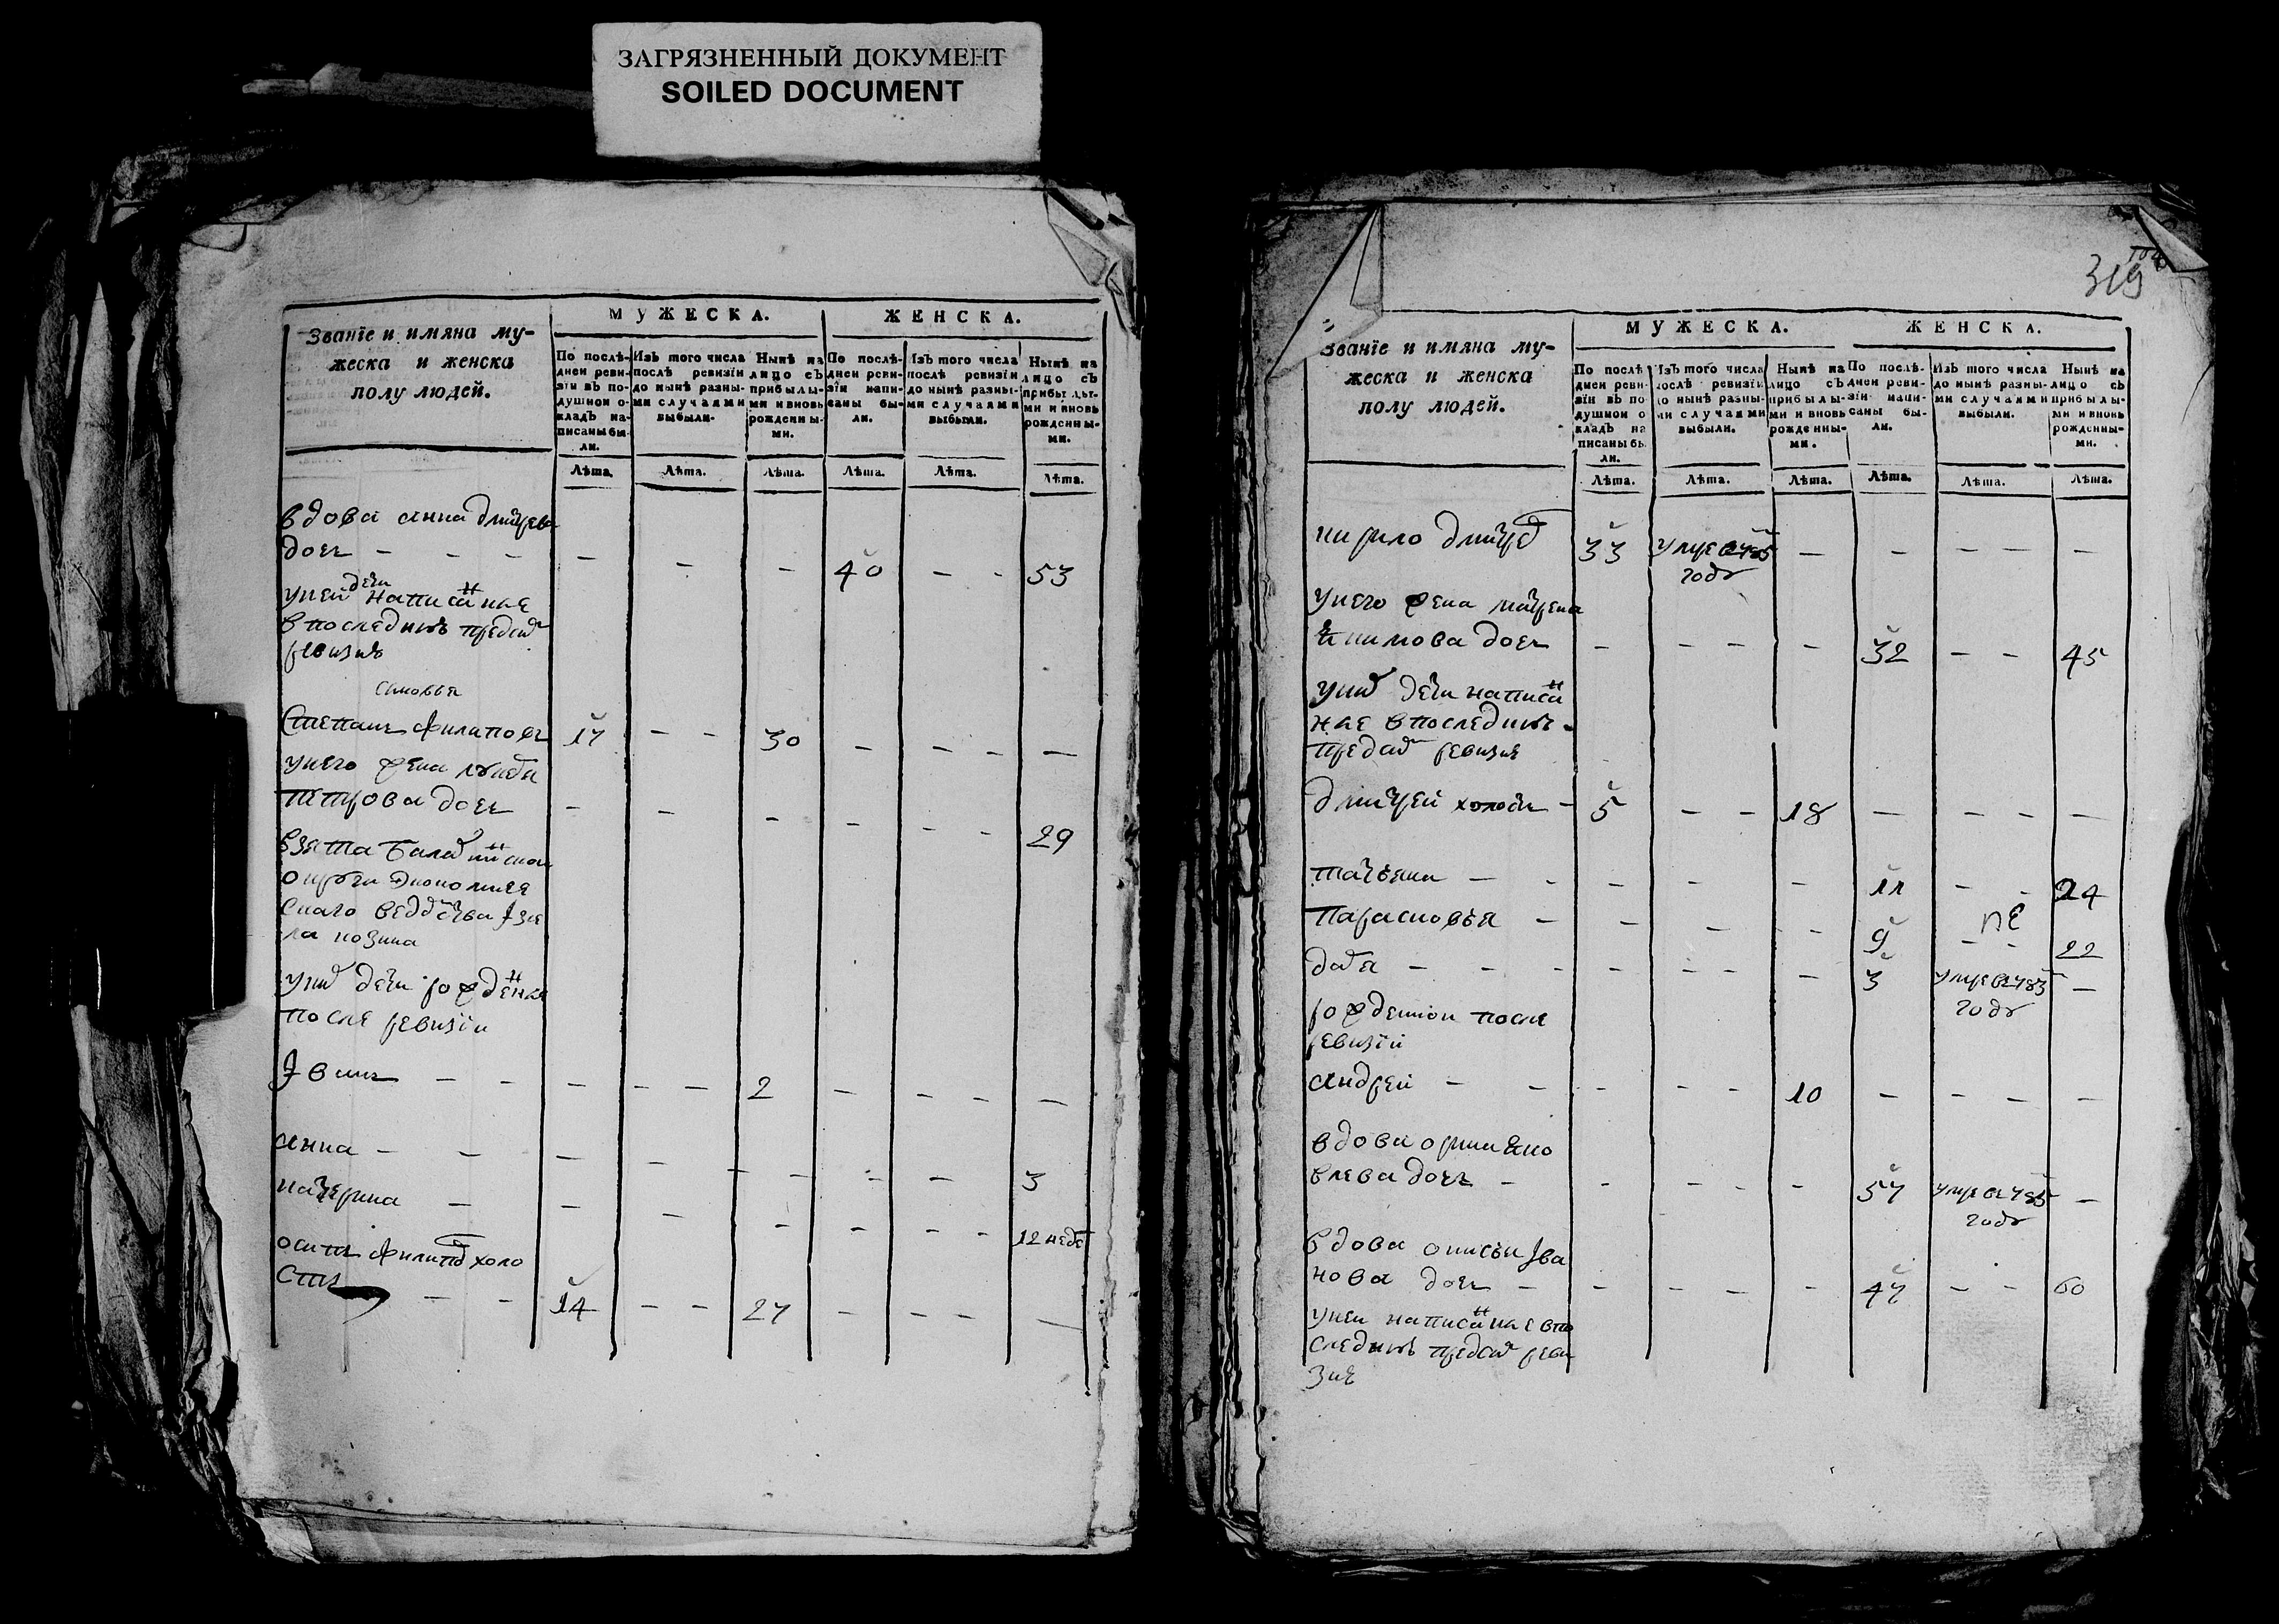 ЗАГРЯЗНЕННЫЙ ДОКУМЕНТ
SOILED DOCUMENT
Званїе и имяна му-
жеска и женска
полу людей.
МУЖЕСКА.
ЖЕНСКА.
По послѣ-
дней реви-
зїи въ по-
душном о-
кладѣ на-
писаны бы-
ли.
Изъ того числа
послѣ ревизїи
до нынѣ разны-
ми случаями
выбыли.
Нынѣ на
лицо съ
прибылы-
ми и вновь
рожденны-
ми.
По послѣ-
дней реви-
зїи напи-
саны бы-
ли.
Изъ того числа
послѣ ревизїи
до нынѣ разны-
ми случаями
выбыли.
Нынѣ на
лицо съ
прибылы-
ми и вновь
рожденны-
ми.
Лѣта. Лѣта. Лѣта. Лѣта. Лѣта. Лѣта.
вдова анна дмитрева
дочь - - - - - - 40 - - 53
уней дети написанные
впоследнюю предсию
ревизию
сыновья
Степанъ филаповъ 17 - - 30 - - - -
унего жена
петрова дочь - - - - - - 29
взята
округи экономиче
скаго
ла
унихъ дети рожденные
после ревизїи
Iванъ - - - - - 2 - - - -
анна - - - - - - - - 3
катерина - - - - - - - - 12 неде
осипъ филиповъ холо
стъ - - 14 - - 27 - - - -
319
Званїе и имяна му-
жеска и женска
полу людей.
МУЖЕСКА.
ЖЕНСКА.
По послѣ
дней реви-
зїи въ по
душном о
кладѣ на
писаны бы
ли.
Изъ того числа
послѣ ревизїи
до нынѣ разны-
ми случаями
выбыли.
Нынѣ на
лицо съ
прибылы-
ми и вновь
рожденны-
ми.
По послѣ-
дней реви-
зїи напи-
саны бы-
ли.
Изъ того числа
до нынѣ разны-
ми случаями
выбыли.
Нынѣ на
лицо съ
прибылы-
ми и вновь
рожденны-
ми.
Лѣта. Лѣта. Лѣта. Лѣта. Лѣта. Лѣта.
кирило дмитрев 33 умре в 785 - - - - -
году
унего жена матрена
кимова дочь - - - - 32 - - 45
унихъ дети написан
ные впоследнюю
предсию ревизию
дмитрей холостъ - 5 - - 18 - - - -
татьяна - - - - - 11 - - 24
парасковья - - - - - 9 - - 22
дарья - - - - - - 3 умре в 783 -
году
рожденной после
ревизїи
андрей - - - - - 10 - - - -
вдова орина яко
влева дочь - - - - - 57 умре в 785 -
году
вдова Iва
нова дочь - - - - - 47 - - 60
уней написанные впо
следнюю предсию реви
зию